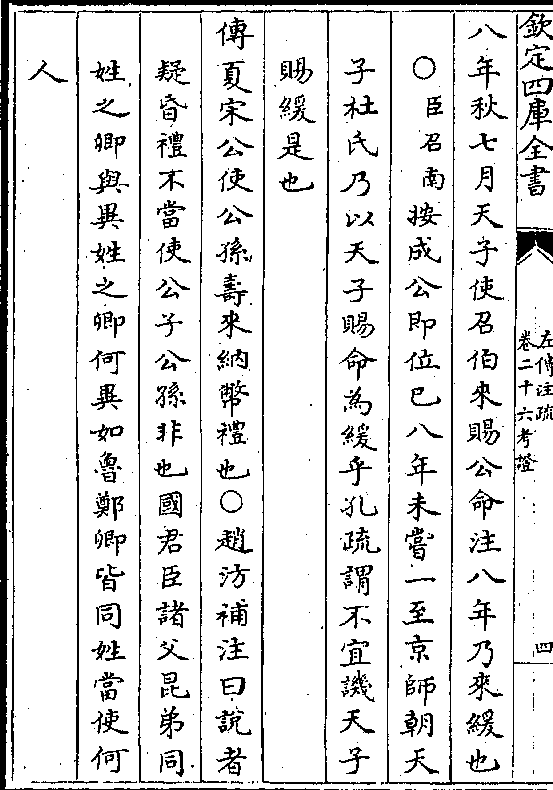 欽定四庫全書
左傳注疏
卷二十六考證
四
八年秋七月天子使召伯來賜公命注八年乃來緩也
○臣召南按成公即位已八年未嘗一至京師朝天
子杜氏乃以天子賜命為緩乎孔疏謂不宜譏天子
賜緩是也
傳夏宋公使公孫壽來納幣禮也○趙汸補注曰說者
疑昏禮不當使公子公孫非也國君臣諸父昆弟同
姓之卿與異姓之卿何異如魯鄭卿皆同姓當使何
人